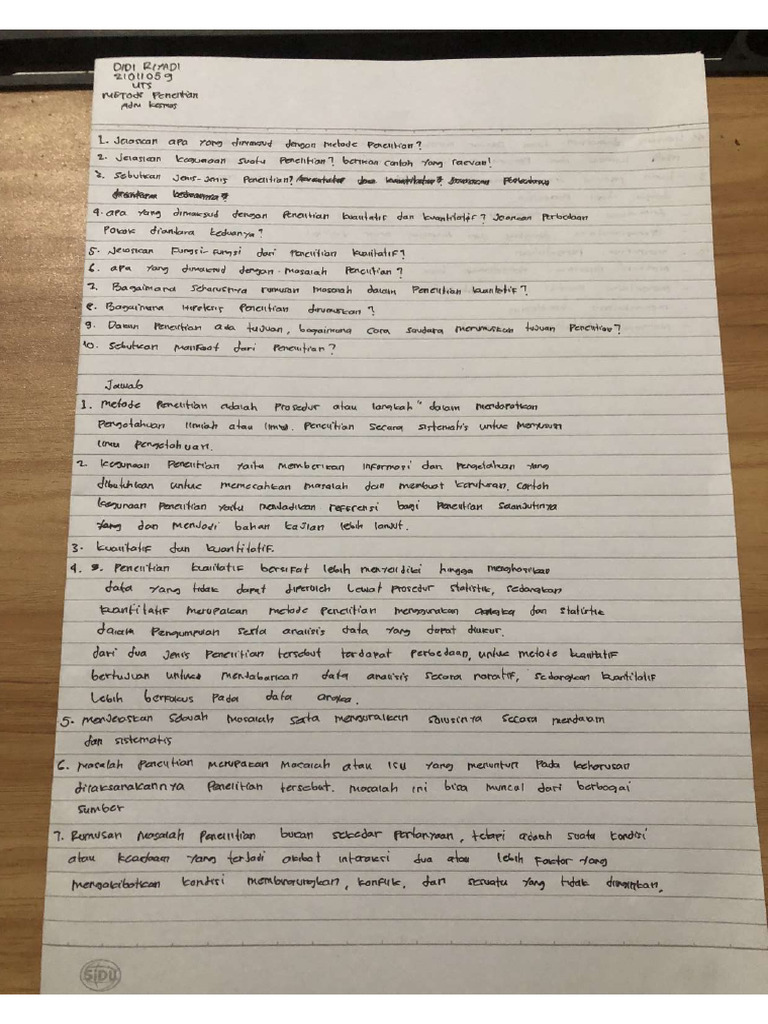 DIDI RIYADI
21011059
UTS
METODE Penelitian
ADM KESMAS
1. Jelaskan apa yang dimaksud dengan metode Penelitian?
2. Jelaskan kegunaan suatu Penelitian? berikan contoh yang relevan!
3. Sebutkan Jenis-Jenis Penelitian? kuantitatif dan kualitatif? Jelaskan perbedaan
diantara keduanya?
4. apa yang dimaksud dengan Penelitian kualitatif dan kuantitatif? Jelaskan Perbedaan
Pokok diantara keduanya?
5. Jelaskan Fungsi-Fungsi dari Penelitian kualitatif?
6. apa yang dimaksud dengan masalah Penelitian?
7. Bagaimana seharusnya rumusan masalah dalam Penelitian kualitatif?
8. Bagaimana Hipotesis Penelitian dirumuskan?
9. Dalam Penelitian ada tujuan, bagaimana cara saudara merumuskan tujuan Penelitian?
10. Sebutkan Manfaat dari Penelitian?
Jawab
1. Metode Penelitian adalah Prosedur atau langkah" dalam mendapatkan
Pengetahuan Ilmiah atau ilmu. Penelitian secara sistematis untuk Menyusun
ilmu pengetahuan.
2. kegunaan Penelitian yaitu memberikan informasi dan Pengetahuan yang
dibutuhkan untuk memecahkan masalah dan membuat keputusan. contoh
kegunaan Penelitian yaitu menjadikan referensi bagi Penelitian selanjutnya
yang dan menjadi bahan kajian lebih lanjut.
3. kualitatif dan kuantitatif.
4. Penelitian kualitatif bersifat lebih menyelidiki hingga menghasilkan
data yang tidak dapat diperoleh lewat prosedur statistik, sedangkan
kuantitatif merupakan metode penelitian menggunakan angka dan statistik
dalam Pengumpulan serta analisis data yang dapat diukur.
dari dua Jenis Penelitian tersebut terdapat perbedaan, untuk metode kualitatif
bertujuan untuk menjabarkan data analisis secara naratif, sedangkan kuantitatif
Lebih berfokus pada data angka.
5. Menjelaskan Sebuah Masalah serta menguraikan solusinya secara mendalam
dan sistematis
6. Masalah Penelitian merupakan Masalah atau isu yang menuntun pada keharusan
dilaksanakannya Penelitian tersebut. Masalah ini bisa muncul dari berbagai
sumber
7. Rumusan Masalah Penelitian bukan sekedar Pertanyaan, tetapi adalah suatu kondisi
atau keadaan yang terjadi akibat interaksi dua atau lebih Faktor yang
Mengakibatkan kondisi membingungkan, konflik, dan sesuatu yang tidak diinginkan.
SIDU